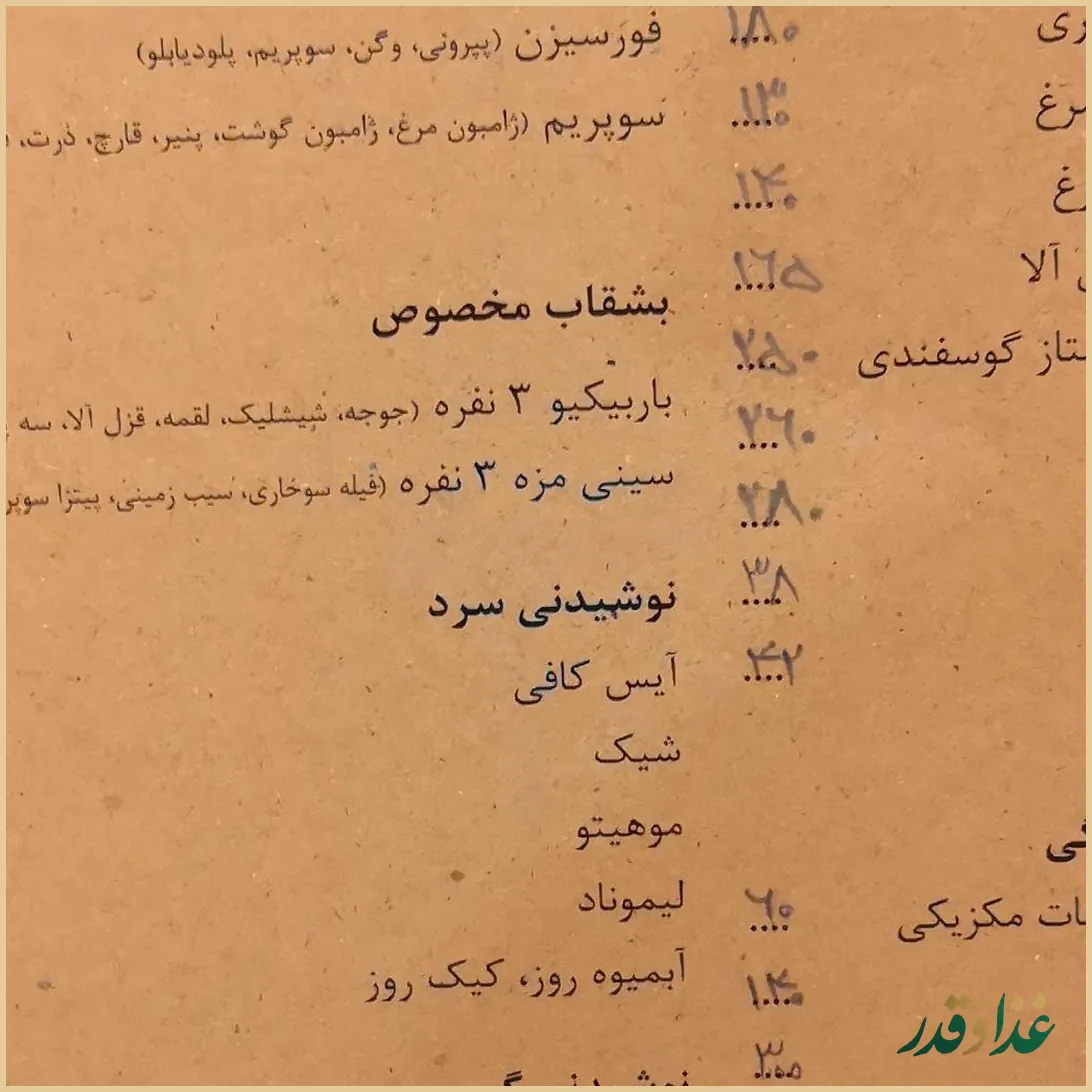 ۱۸۰
مرغ ۱۳۰
۱۴۰
آلا ۱۶۵
گوسفندی ۲۵۰
۲۶۰
۲۸۰
۳۸
۴۲
مکزیکی ۶۰
۱۴۰
فورسیزن (پپرونی، وگن، سوپریم، پلودیابلو)
سوپریم (ژامبون مرغ، ژامبون گوشت، پنیر، قارچ، ذرت،
بشقاب مخصوص
باربیکیو ۳ نفره (جوجه، شیشلیک، لقمه، قزل آلا، سه
سینی مزه ۳ نفره (فیله سوخاری، سیب زمینی، پیتزا سوپر
نوشیدنی سرد
آیس کافی
شیک
موهیتو
لیموناد
آبمیوه روز، کیک روز
غذا و قدر